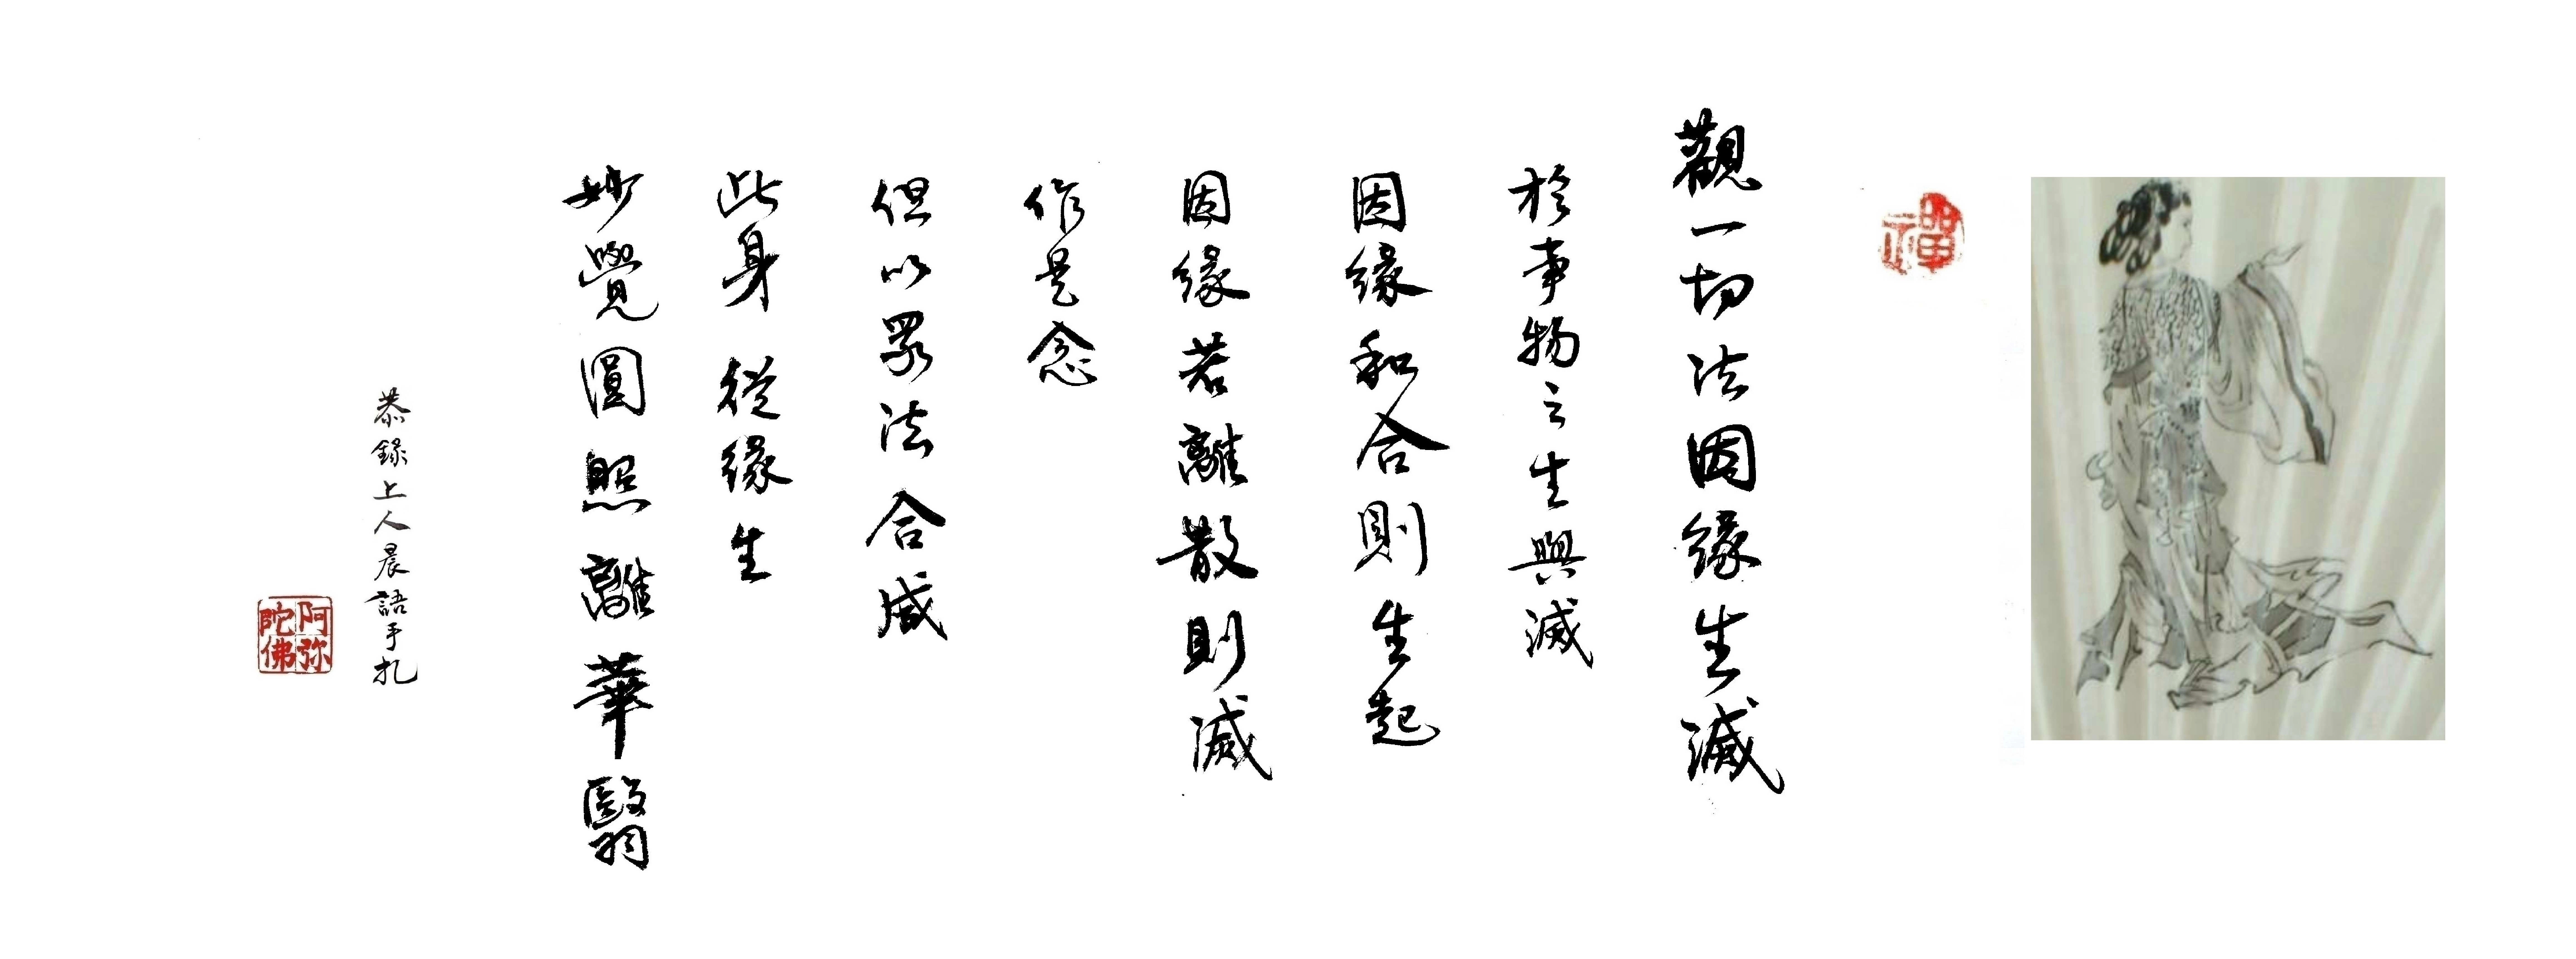 禪
觀一切法因緣生滅
於事物之生與滅
因緣和合則生起
因緣若離散則滅
作是念
但以眾法合成
此身 從緣生
妙覺圓照離華翳
恭錄上人晨語手札
阿弥
陀佛